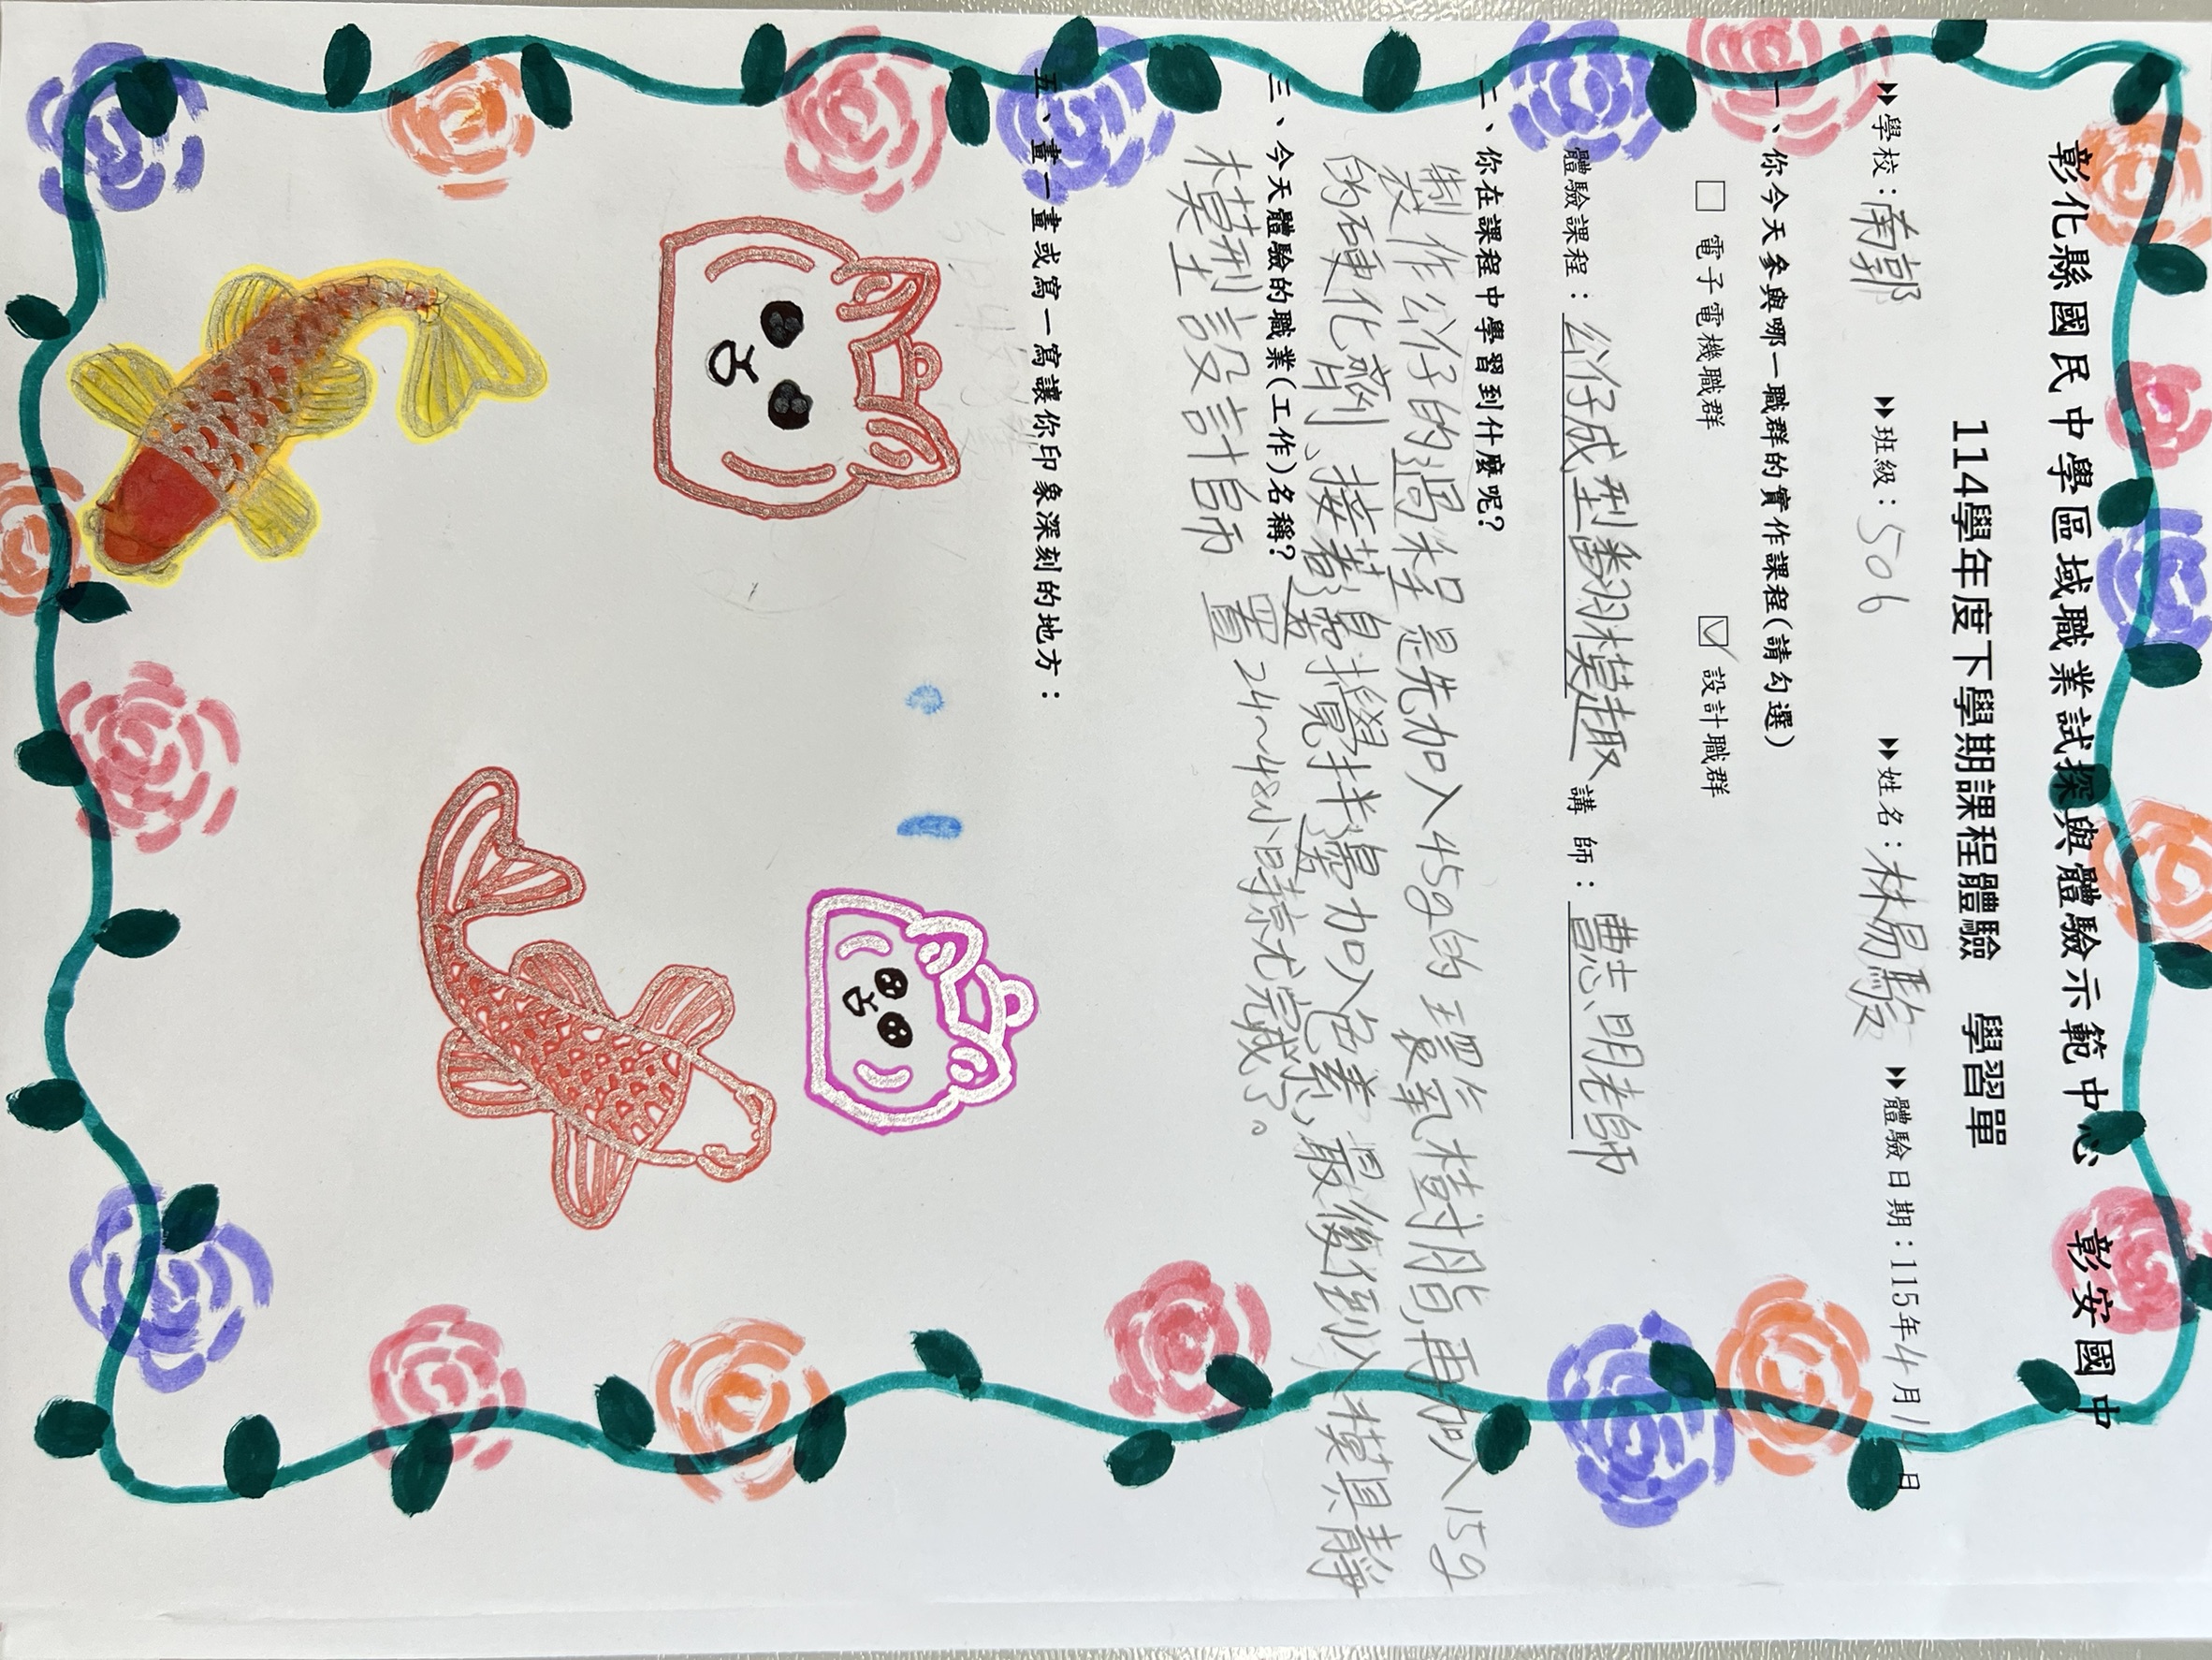 彰化縣國民中學區域職業試探與體驗示範中心　彰安國中
114學年度下學期課程體驗　學習單
學校：南郭　班級：506　姓名：林易駿　體驗日期：115年4月14日
一、你今天參與哪一職群的實作課程(請勾選)
□ 電子電機職群　☑ 設計職群
體驗課程：公仔成型翻模趣　講師：曹志明老師
二、你在課程中學習到什麼呢?
製作公仔的過程是先加入45g的環氧樹脂,再加入15g
的硬化劑,接著是需要攪拌還需要加入色素,最後倒入模具靜
置24~48小時就完成了。
三、今天體驗的職業(工作)名稱?
模型設計師
五、畫一畫或寫一寫讓你印象深刻的地方：